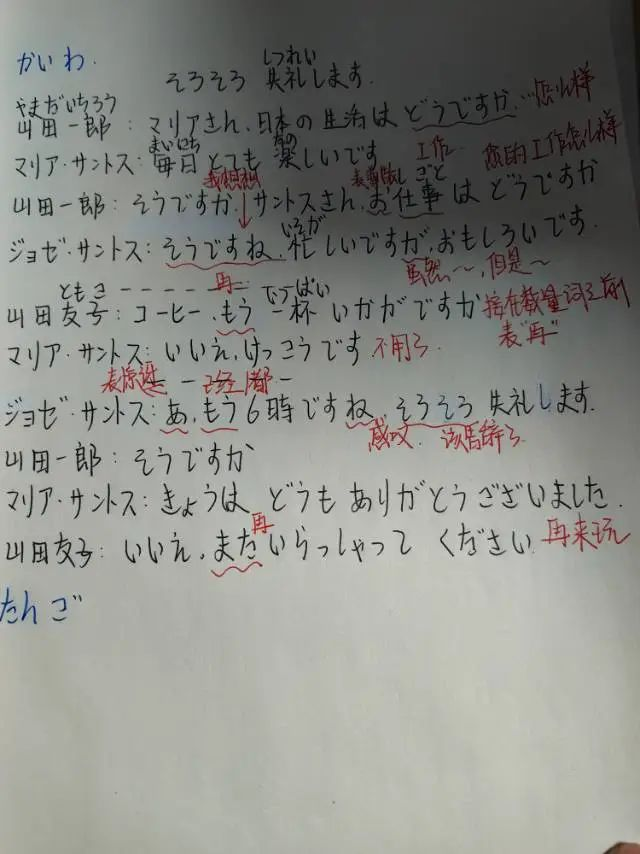 かいわ.
しつれい
そろそろ 失礼します.
やまだいちろう
山田一郎：マリアさん、日本の生活は どうですか… 怎么样
まいにち たの
マリア・サントス：毎日とても 楽しいです 工作 您的工作怎么样
我想想 しごと
山田一郎：そうですか、サントスさん、お仕事は どうですか
いそが
ジョゼ・サントス：そうですね、忙しいですが、おもしろいです.
虽然～，但是～
ともこ 再 いっぱい
山田友子：コーヒー、もう 一杯 いかがですか 接在数量词之前
表“再”
マリア・サントス：いいえ、けっこうです 不用了
表惊讶 已经 都
ジョゼ・サントス：あ、もう 6時ですね、そろそろ 失礼します.
感叹. 该告辞了
山田一郎：そうですか
マリア・サントス：きょうは どうも ありがとうございました.
再
山田友子：いいえ、また いらっしゃって ください 再来玩
たんご